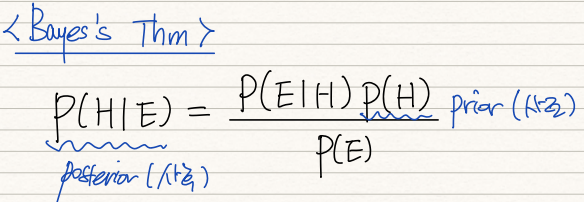 <Bayes's Thm>
P(H|E) = P(E|H) P(H) / P(E)
prior
posterior